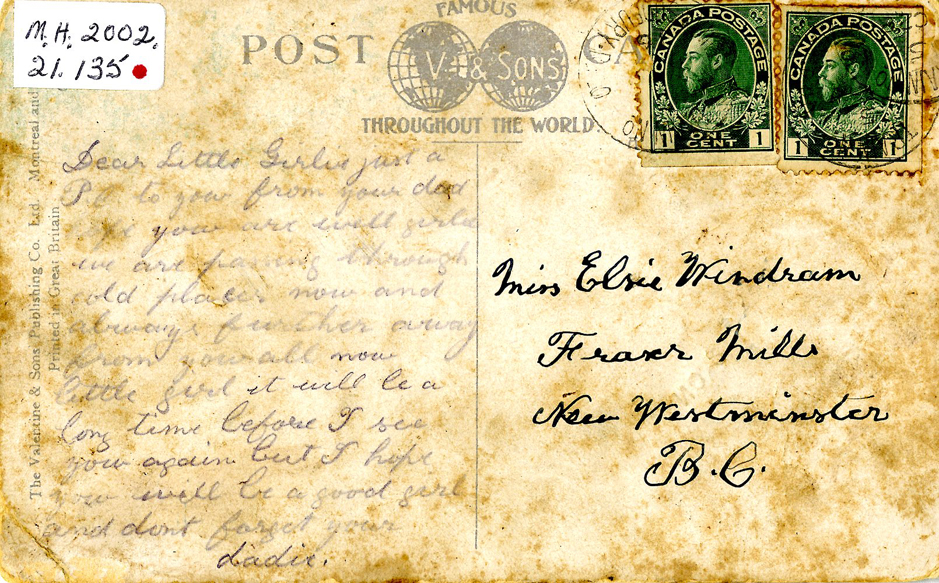 M.H. 2002.
21.135
FAMOUS
POST CA
V. & SONS
THROUGHOUT THE WORLD.
CANADA POSTAGE
1 ONE CENT 1
CANADA POSTAGE
1 ONE CENT 1
The Valentine & Sons Publishing Co. Ltd. Montreal and
Printed in Great Britain
Dear Little Girlie just a
P.C. to you from your dad
hope your are well girlie
we are passing through
cold places now and
always further away
from you all now
little girl it will be a
long time before I see
you again but I hope
you will be a good girl
and dont forget your
dadie.
Miss Elsie Windram
Fraser Mills
New Westminster
B.C.